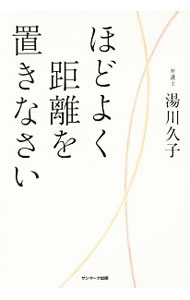 ほどよく
距離を
置きなさい
弁護士
湯川久子
サンマーク出版